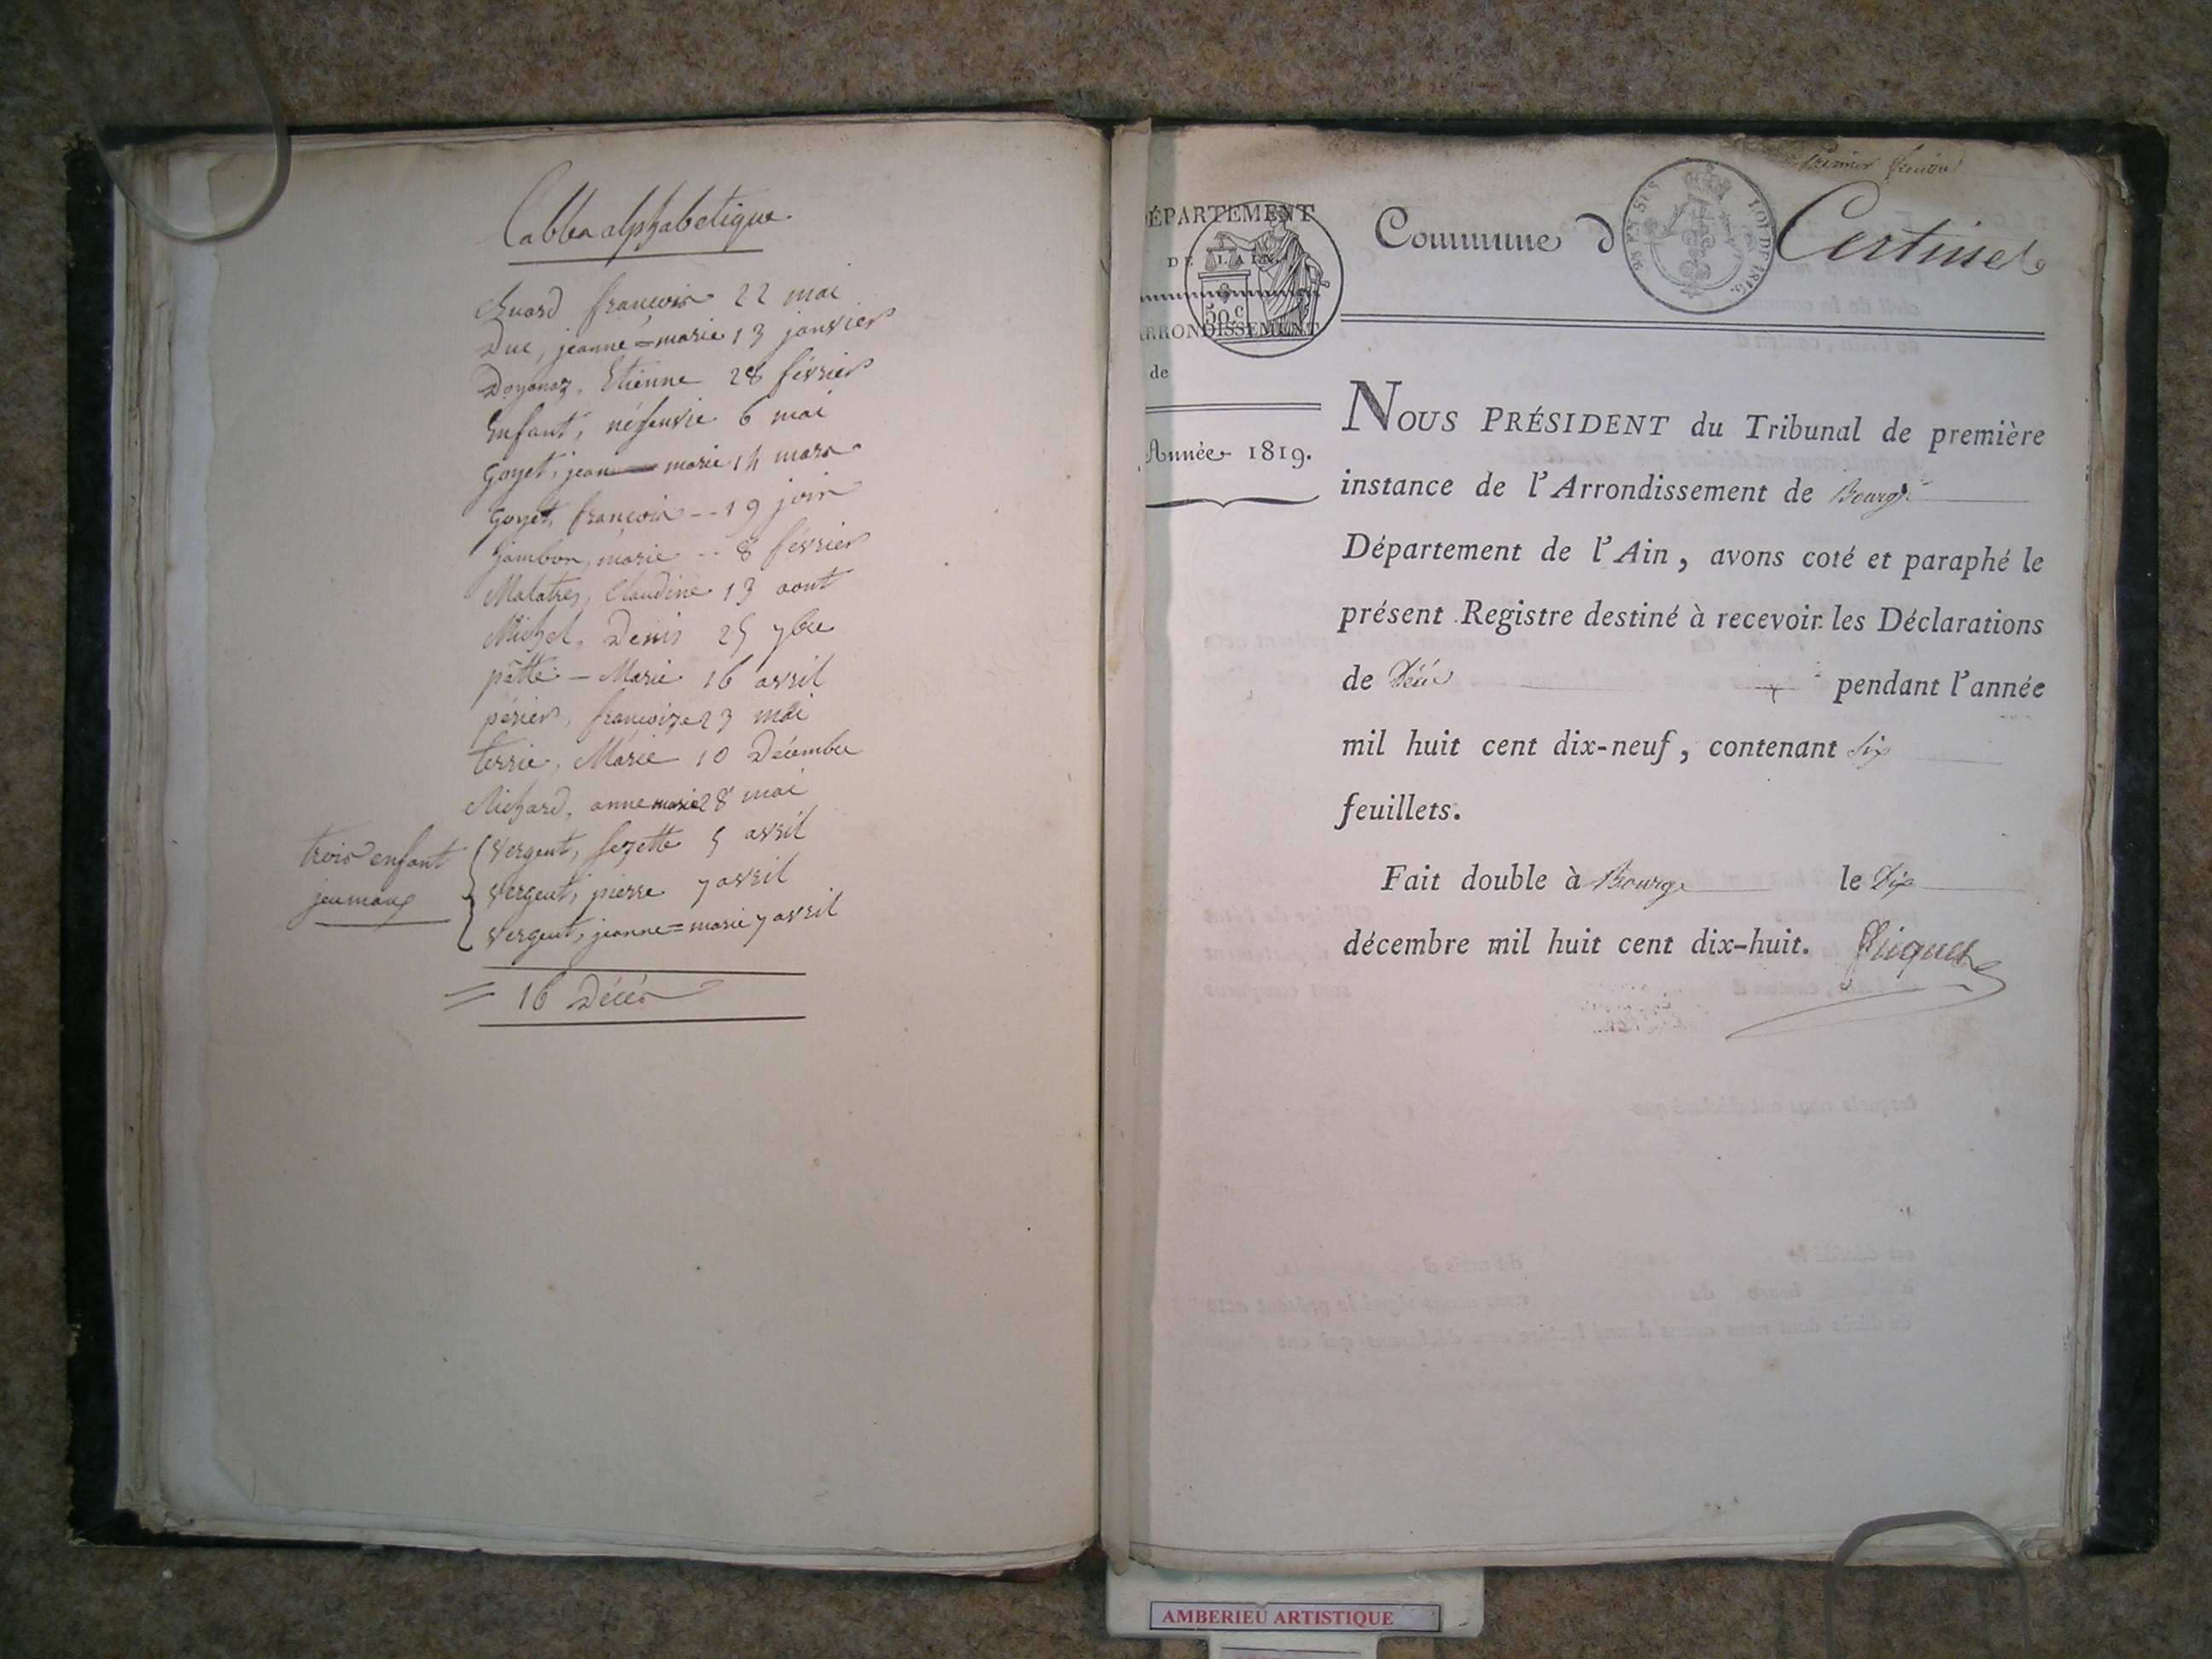 Table alphabetique.
Chuard françois 22 mai
Duc, jeanne=marie 13 janvier
Doyonaz, Etienne 28 février
Enfant, 6 mai
Goyet, jean marie 14 mars
Goyet, françois -- 19 juin
jambon, marie -- 8 février
Malatres, Claudine 13 aout
Michel, Denis 25 7bre
patte - Marie 16 avril
périer, françoize 23 mai
terrie, Marie 10 Décembre
Richard, anne marie 28 mai
trois enfant
jeumaux
Vergent, Jozette 5 avril
Vergent, pierre 7 avril
Vergent, jeanne=marie 7 avril
= 16 Décès
Premier
ÉPARTEMENT
DE L'AIN.
50 c
RRONDISSEMENT
de
Année 1819.
Commune d Certines
LOI DE 1816.
NOUS PRÉSIDENT du Tribunal de première
instance de l'Arrondissement de Bourg
Département de l'Ain, avons coté et paraphé le
présent Registre destiné à recevoir les Déclarations
de Décès pendant l'année
mil huit cent dix-neuf, contenant six
feuillets.
Fait double à Bourg le Dix
décembre mil huit cent dix-huit.
AMBERIEU ARTISTIQUE